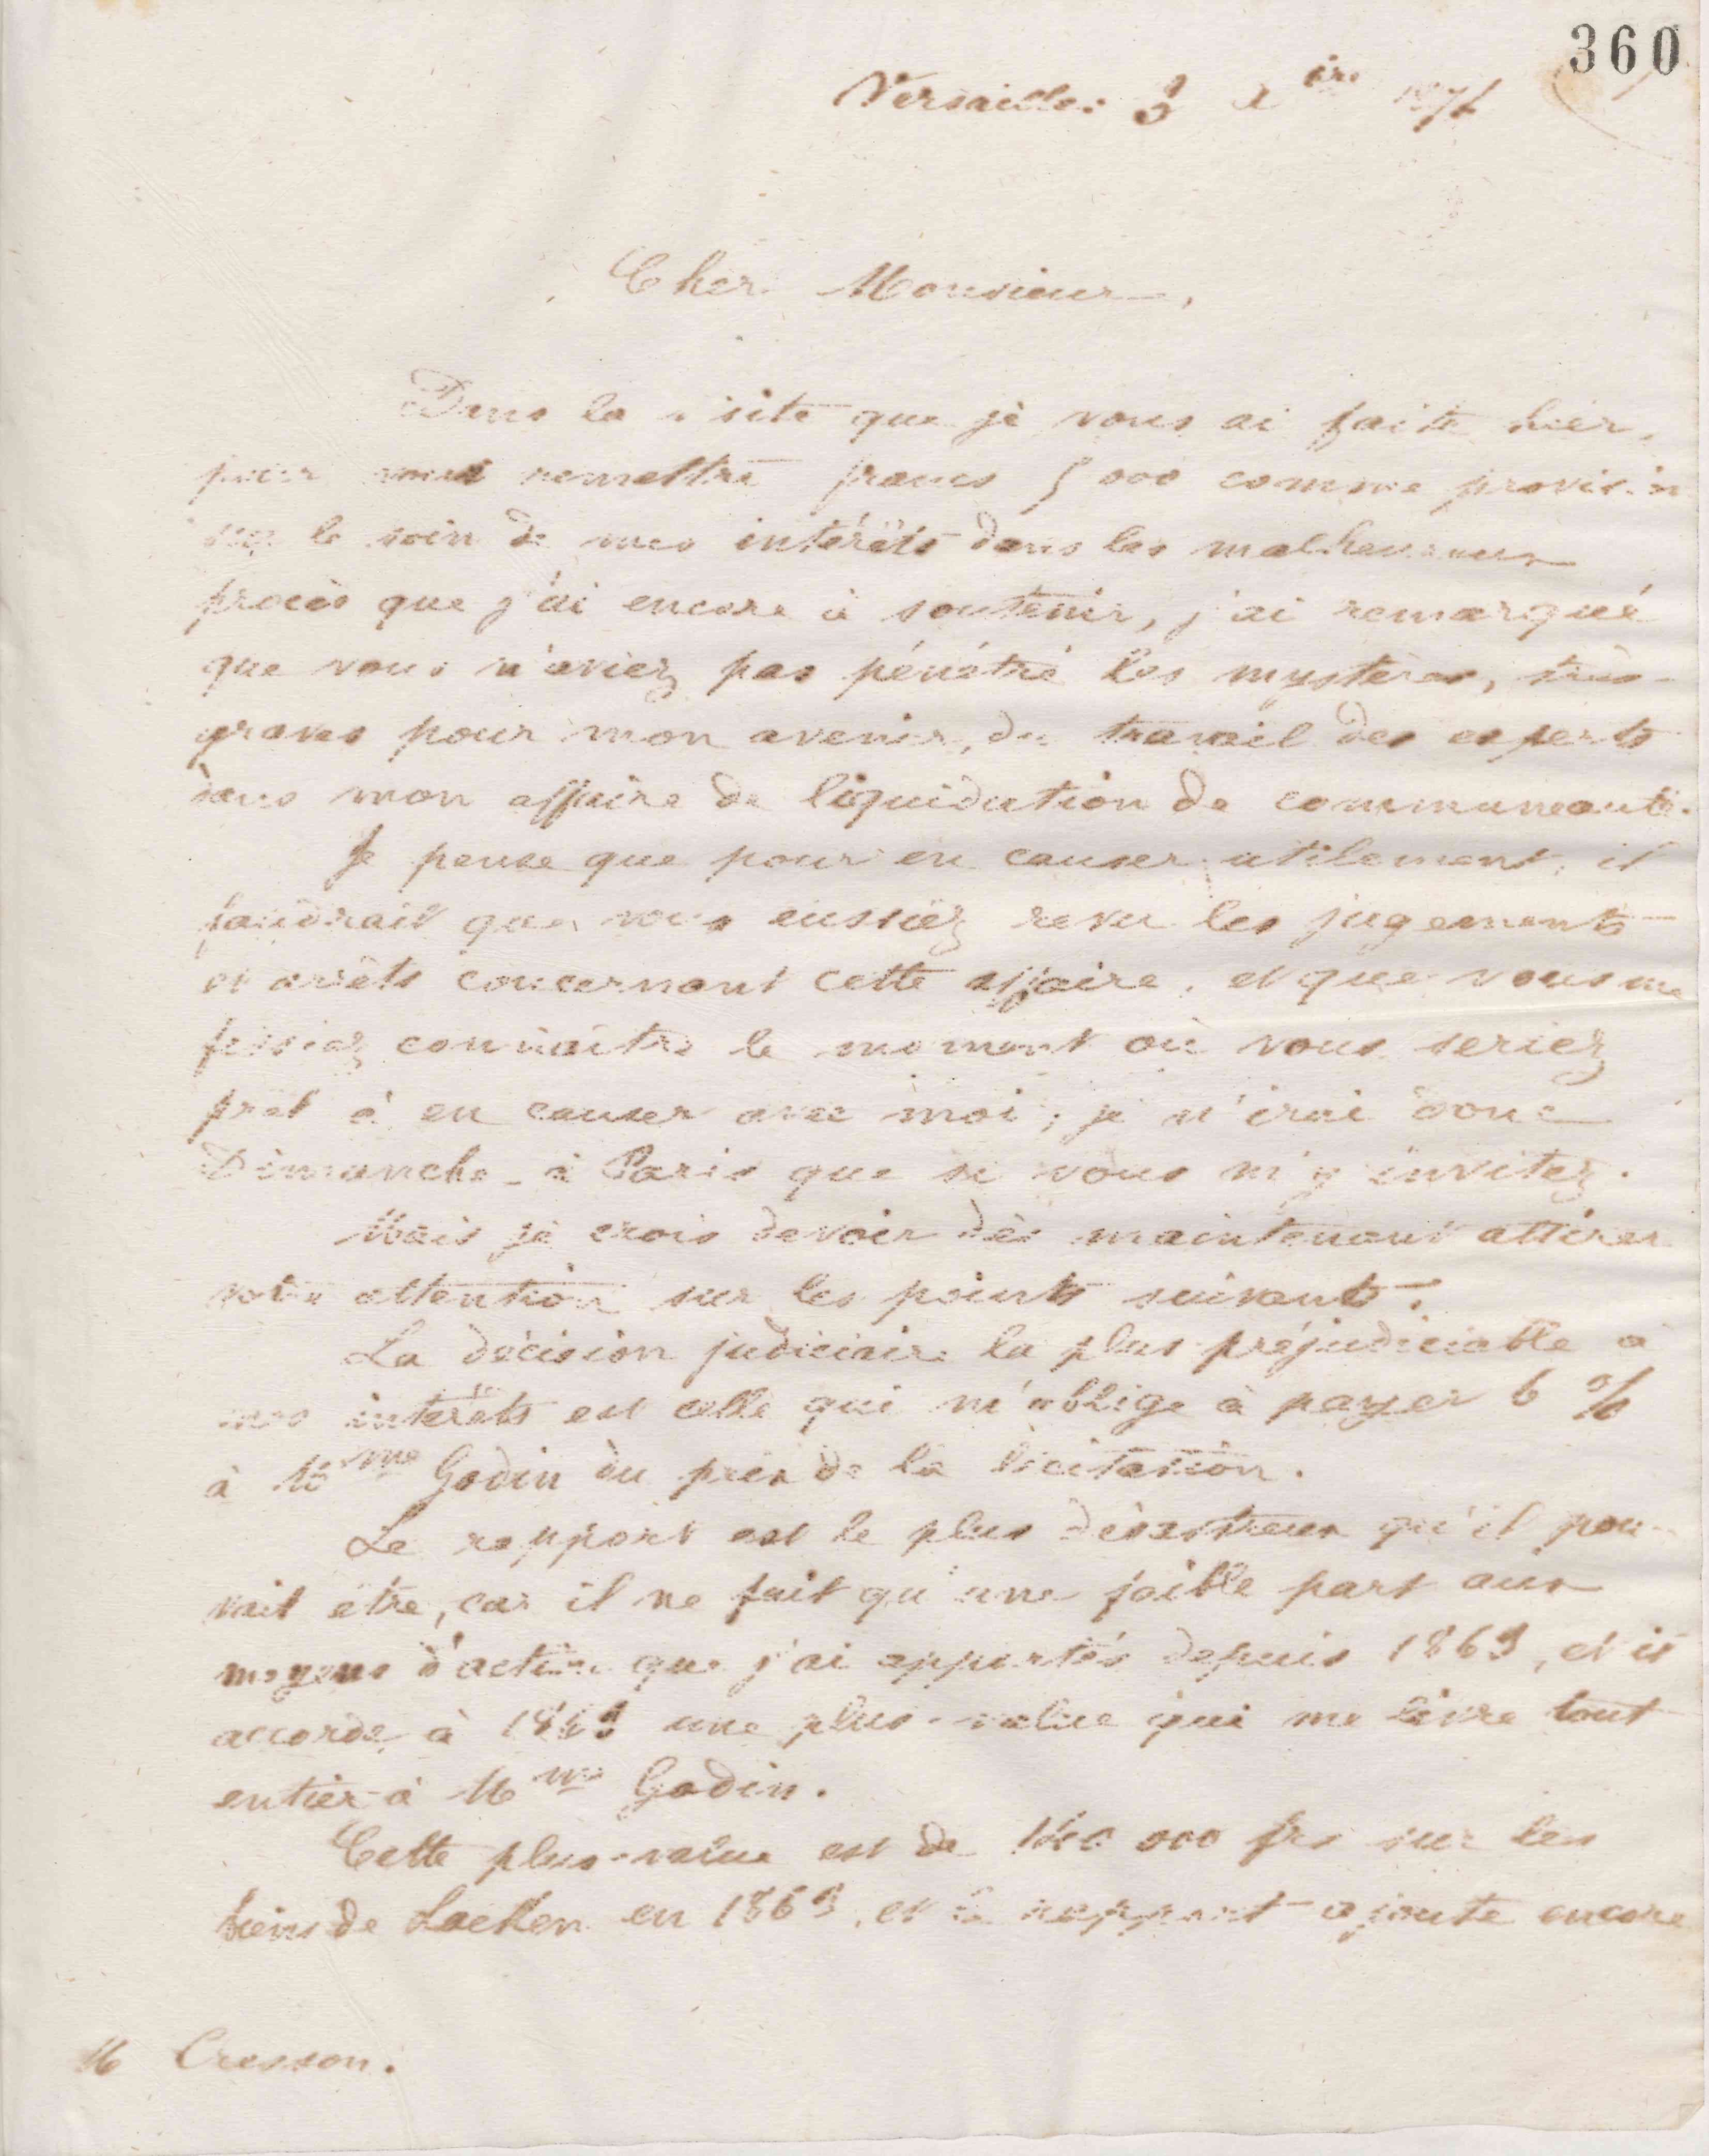 360
Versailles 3 Xbre 1874
Cher Monsieur,
Dans la visite que je vous ai faite hier,
pour vous remettre francs 5 000 comme provision
sur le soin de mes intérêts dans les malheureux
procès que j'ai encore à soutenir, j'ai remarqué
que vous n'aviez pas pénétré les mystères, très-
graves pour mon avenir, du travail des experts
dans mon affaire de liquidation de communauté.
Je pense que pour en causer utilement, il
faudrait que vous eussiez revu les jugements
et arrêts concernant cette affaire, et que vous me
fassiez connaître le moment où vous seriez
prêt à en causer avec moi ; je n'irai donc
Dimanche à Paris que si vous m'y invitez.
Mais je crois devoir dès maintenant attirer
votre attention sur les points suivants.
La décision judiciaire la plus préjudiciable à
mes intérêts est celle qui m'oblige à payer 6 %
à Mme Godin du prix de la licitation.
Le rapport est le plus désastreux qu'il pou-
vait être, car il ne fait qu'une faible part aux
moyens d'action que j'ai apportés depuis 1863, et il
accorde à 1863 une plus-value qui me livre tout
entier à Mme Godin.
Cette plus-value est de 000 frs sur les
biens de Laeken en 1863, et le rapport ajoute encore
M Cresson.